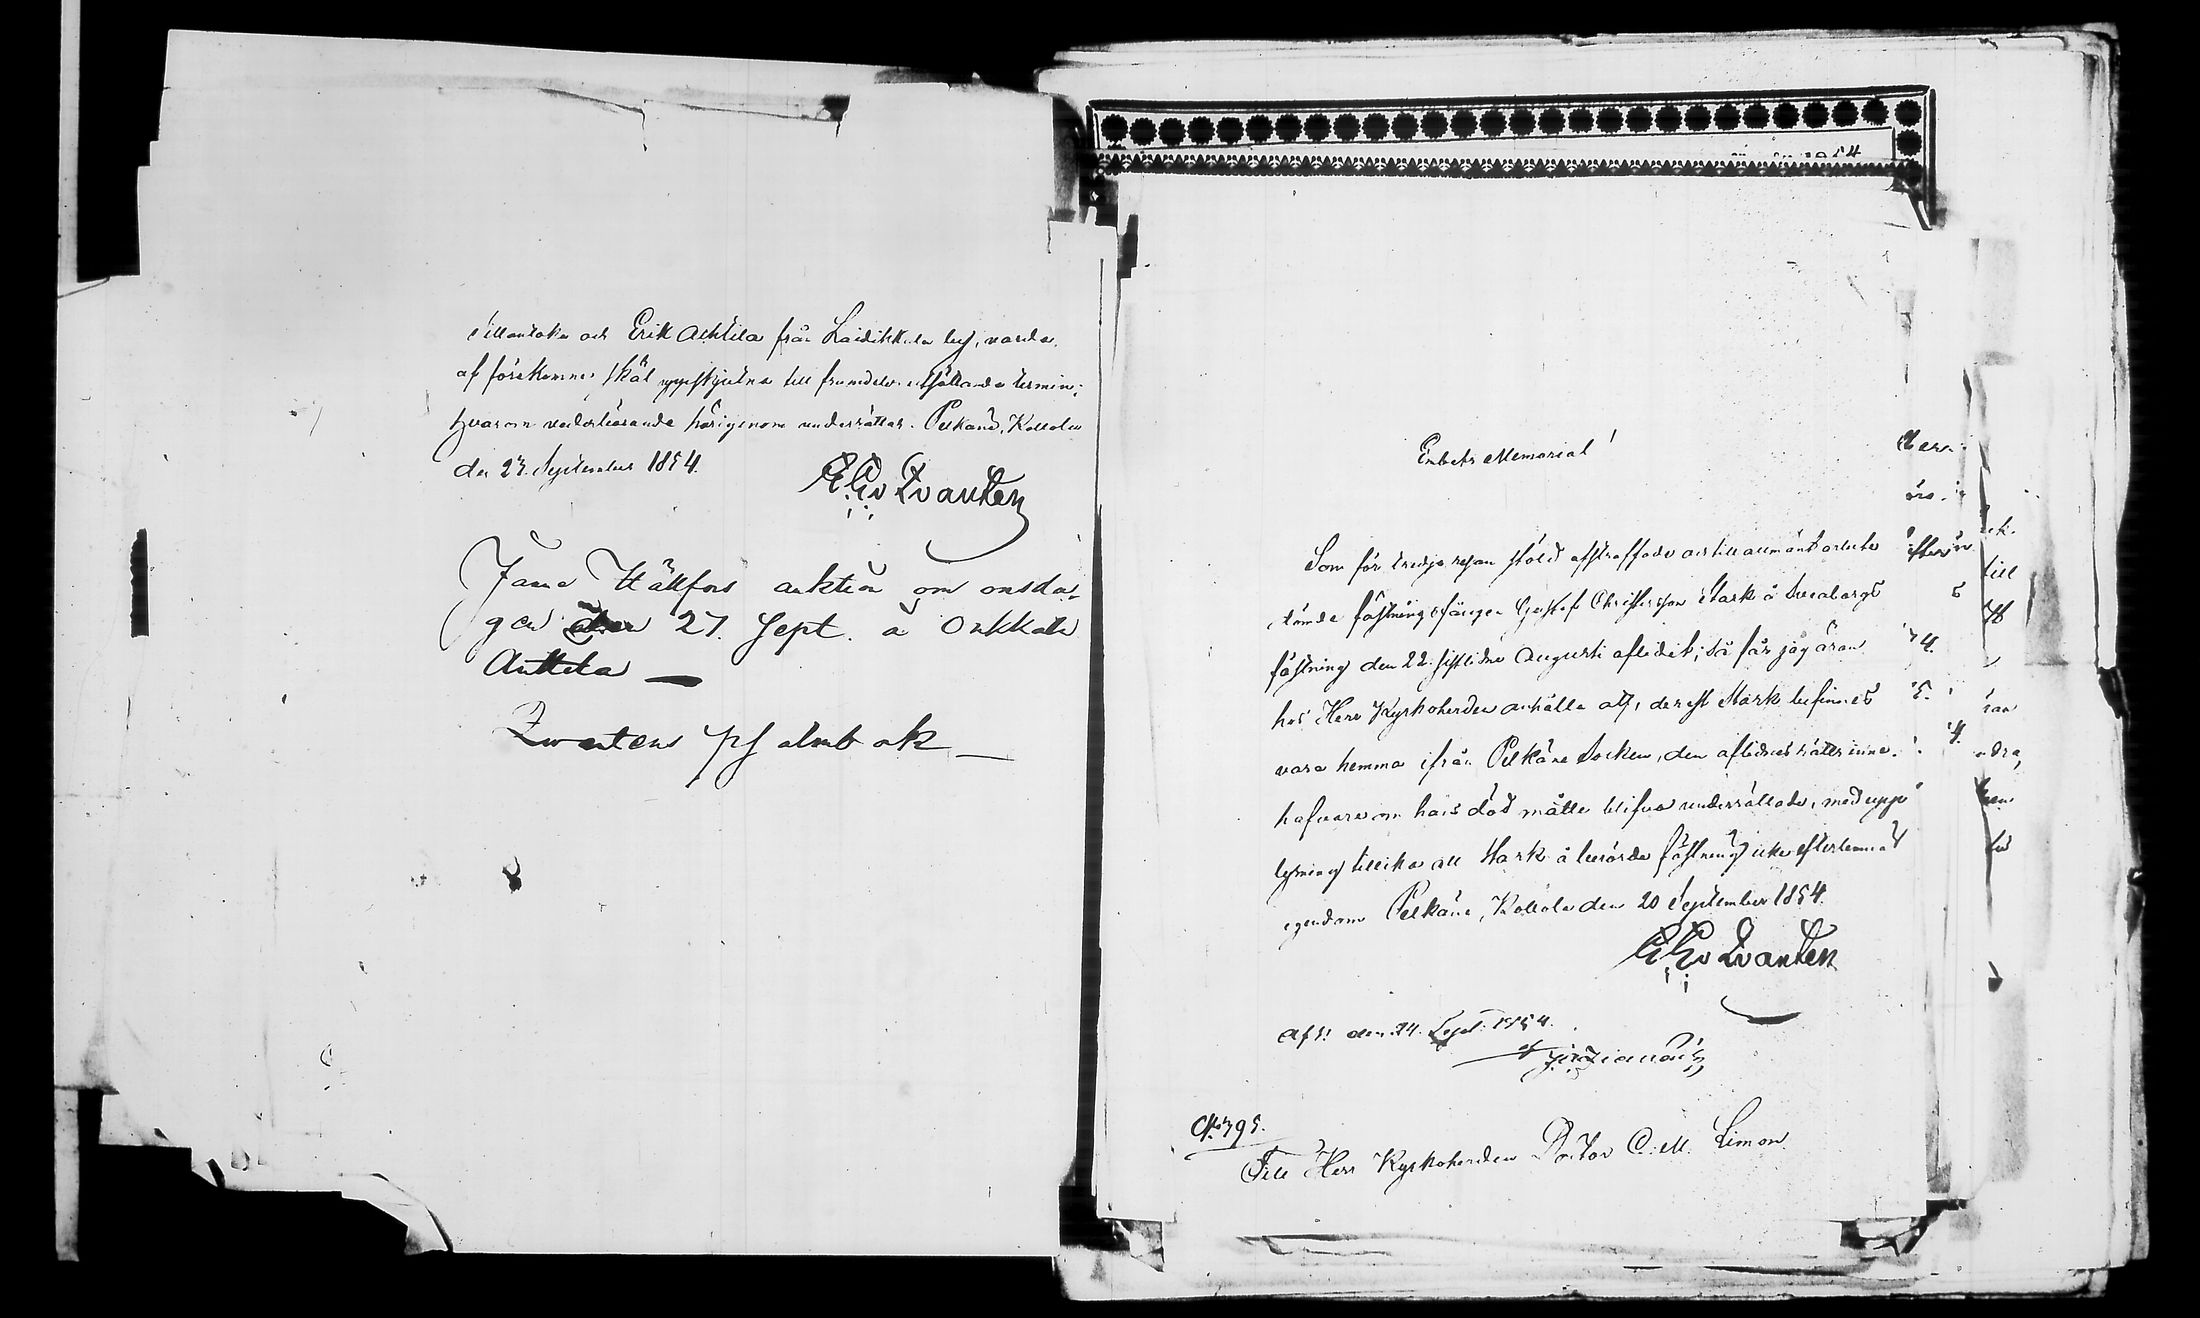 Tillantaka och Erik Anttila från Laitikkala by, varda
af förekomne skäl uppskjutna till framdeles utsättande termin;
hvarom vederbörande härigenom underrättas. Pelkäne, Kollola
den 23. September 1854.
E. G. v Qvanten
Jana Hällfors auktion om onsda-
gen den 27. Sept. å Onkkala
Anttila —
Qvantens psalmbok —
1854
Embets Memorial!
Som för tredje resan stöld afstraffade och till allmänt arbete
dömde fästningsfången Gustaf Christersson Stark å Sveaborgs
fästning den 22. sistlidne Augusti aflidit; Så får jag äran
hos Herr Kyrkoherden anhålla att, derest Stark befinnes
vara hemma ifrån Pelkäne Socken, den aflidnes rätterinne-
hafvare om hans död måtte blifva underrättade, med upp-
lysning tillika att Stark å berörde fästning icke efterlemnat
egendom Pelkäne, Kollola den 20 September 1854.
E. G. v Qvanten
Afs! den 24. Sept. 1854.
No 395.
Till Herr Kyrkoherden Doktor C. M. Limon